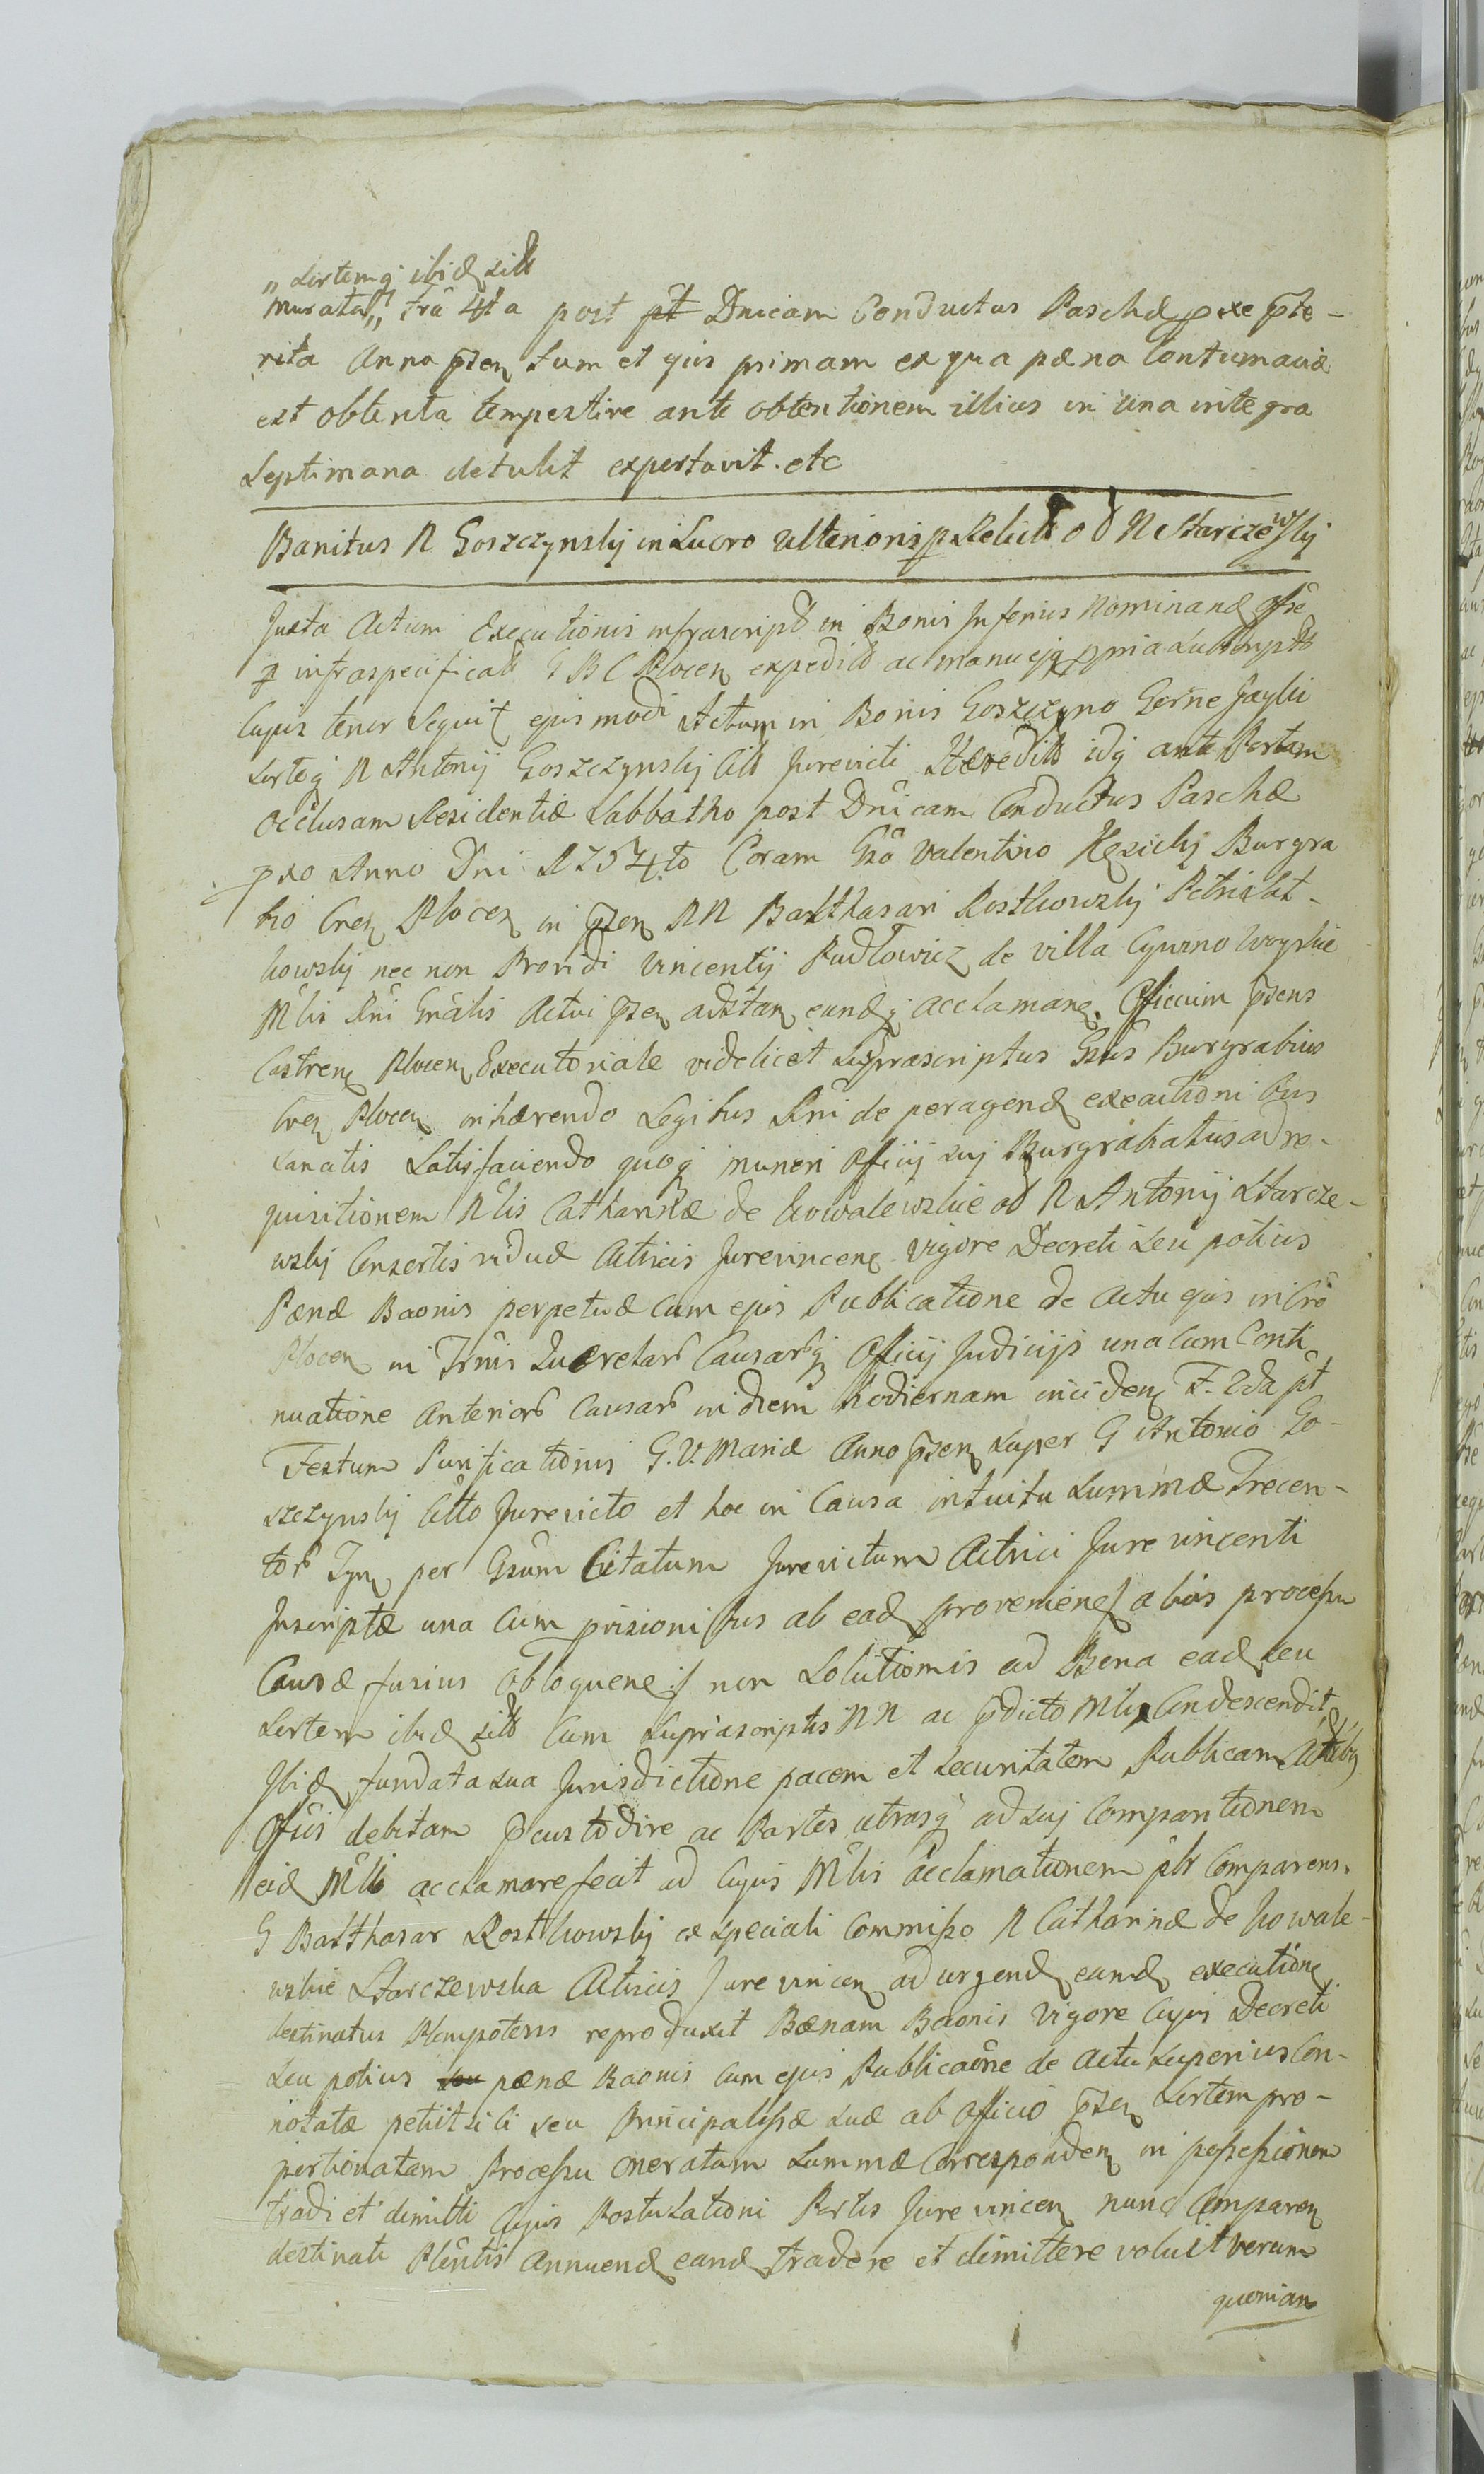 „ sortemq ibid sitt
murata „ fra 4ta post pt Dnicam Conductus Paschæ proxe pte-
rita Anno pzen tum et ejus primam ex qua pæna Contumaciæ
est obtenta tempestive ante obtentionem illius in una integra
Septimana detulit exportavit. etc
Banitus N Goszczynskij in Lucro Ulterioris p Relict o d N Starczewskij
Juxta Actum Executionis infrascript in Bonis Inferius Nominand offse
p infraspecificat G B C Plocen expedit ac manu ejq ppria subscript
Cujus tenor Sequit ejus modi Actum in Bonis Goszczyno Gorne Jaylu
sorteq N Antonij Goszczynskij Citt Jurevicti Hæredit idq ante Portam
Occlusam Residentiæ Sabbatho post Dnicam Conductus Paschæ
pxo Anno Dni 1754to Coram Gso Valentino Kęsickij Burgra
bio Cren Plocen in pzen NN Balthasari Rostkowskij Petri Lat-
kowskij nec non Providi Vincentij Pudłowicz de villa Cywino Woyskie
Mlis Rni Gnalis Actui pzen adstan eundq acclamane. Officium pzens
Castrens Plocen Executoriale videlicet Supra scriptus Gsus Burgrabius
Cren Plocen inhærendo Legibus Rni de peragend executioni bus
sancitis Satisfaciendo quoq muneri Officij suj Burgrabiatus ad re-
quisitionem Nlis Catharinæ de Kowalewskie od N Antonij Starcze-
wskij Consortis viduæ Actricis Jurevincen vigore Decreti seu potius
Pænæ Baonis perpetuæ Cum ejus Publicatione de Actu ejus in Cro
Plocen in Trnis Quærelarb Causarbq Officij Judicijs una Cum Conti
nuatione Anteriorb Causarb in diem hodiernam inciden F. 2da pt
Festum Purificationis G. V. Mariæ Anno pzen super G Antonio Go-
szczynskij Citto Jurevicto et hoc in Causa intuitu Summæ Trecen-
torb Tyn per Gsum Citatum Jurevictum Actrici Jure vincenti
Inscriptæ una Cum provisioni bus ab ead provenien/ a bis processu
Causæ fusius obloquene / non Solutionis ad Bona ead seu
Sortem ibid sitt Cum Suprascriptis NN ac pdicto Mli Condescendit
Ibid fundata sua Jurisdictione pacem et Securitatem Publicam Actibq
Offiis debitam pcustodire ac Partes utrasq ad suj Comparitionem
eid Mli acclamare fecit ad Cujus Mlis acclamationem plr Comparens.
G Balthasar Rostkowskij ex speciali Commisso N Catharinæ de Kowale-
wskie Starczewska Actricis Jure vincen ad urgend eand execution
destinatus Plenipotens reproduxit Pænam Baonis Vigore Cujus Decreti
Seu potius pænæ Baonis Cum ejus Publicaone de Actu Superius Con-
notatæ petiit sibi seu Principalissæ suæ ab Officio pzen Sortem pro-
portionatam Processu oneratam Summæ Corresponden in possessionem
tradi et dimitti Cujus Postulationi Partis Jure vincen nunc Comparen
destinati Plentis annuend eand tradere et dimittere voluit verum
quoniam